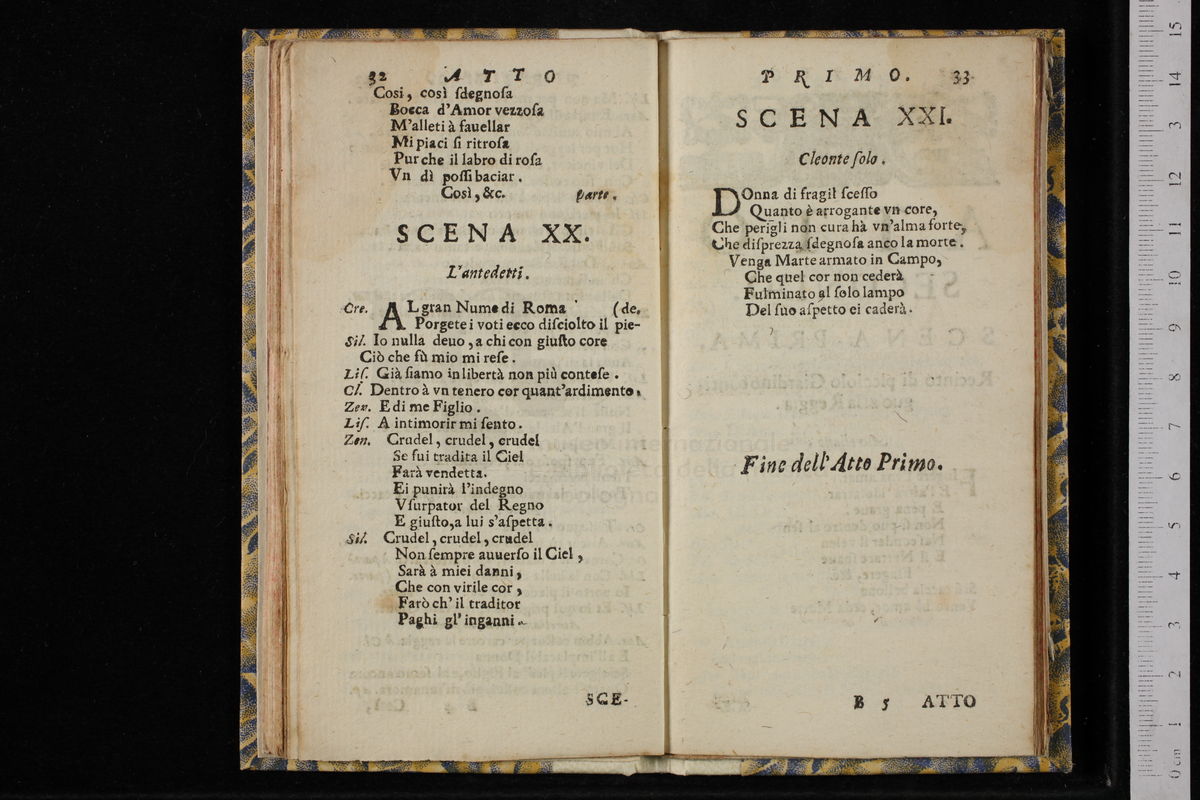 32 ATTO
Cosi, così ſdegnoſa
Bocca d'Amor vezzoſa
M'alleti à fauellar
Mi piaci ſi ritroſa
Pur che il labro di roſa
Vn dì poſſi baciar.
Così, &c. parte.
SCENA XX.
L'antedetti.
Cre. AL gran Nume di Roma (de.
Porgete i voti ecco diſciolto il pie-
Sil. Io nulla deuo, a chi con giuſto core
Ciò che fù mio mi reſe.
Liſ. Già ſiamo in libertà non più conteſe.
Cl. Dentro à vn tenero cor quant'ardimento.
Zen. E di me Figlio.
Liſ. A intimorir mi ſento.
Zen. Crudel, crudel, crudel
Se fui tradita il Ciel
Farà vendetta.
Ei punirà l'indegno
Vſurpator del Regno
E giuſto, a lui s'aſpetta.
Sil. Crudel, crudel, crudel
Non ſempre auuerſo il Ciel,
Sarà à miei danni,
Che con virile cor,
Farò ch'il traditor
Paghi gl'inganni.
SCE-
PRIMO. 33
SCENA XXI.
Cleonte ſolo.
DOnna di fragil ſceſſo
Quanto è arrogante vn core,
Che perigli non cura hà vn'alma forte,
Che diſprezza ſdegnoſa anco la morte.
Venga Marte armato in Campo,
Che quel cor non cederà
Fulminato al ſolo lampo
Del ſuo aſpetto ei caderà.
Fine dell'Atto Primo.
B 5 ATTO
0 cm 1 2 3 4 5 6 7 8 9 10 11 12 13 14 15